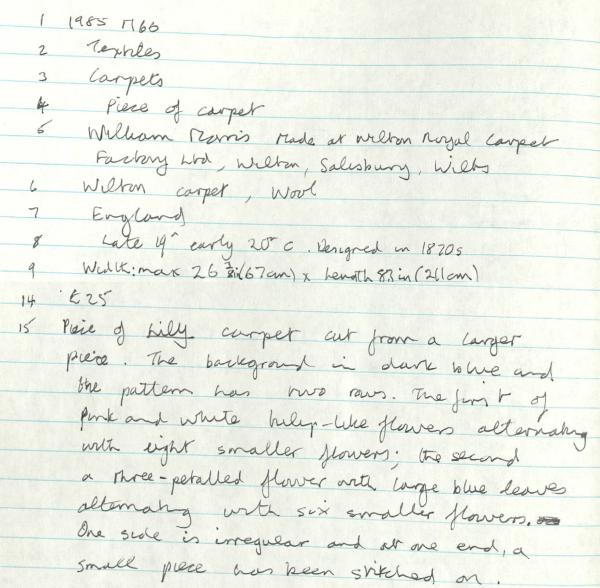 1 1985 M66
2 Textiles
3 Carpets
4 Piece of carpet
5 William Morris Made at Wilton Royal Carpet
Factory Ltd, Wilton, Salisbury, Wilts
6 Wilton carpet, Wool
7 England
8 Late 19^ early 20^ C. Designed in 1870s
9 Width: max 26 3/8in (67cm) x Length 83in (211cm)
14 £25
15 Piece of Lily carpet cut from a larger
piece. The background in dark blue and
the pattern has two rows. The first of
pink and white tulip-like flowers alternating
with eight smaller flowers; the second
a three-petalled flower with large blue leaves
alternating with six smaller flowers.
One side is irregular and at one end, a
small piece has been stitched on.